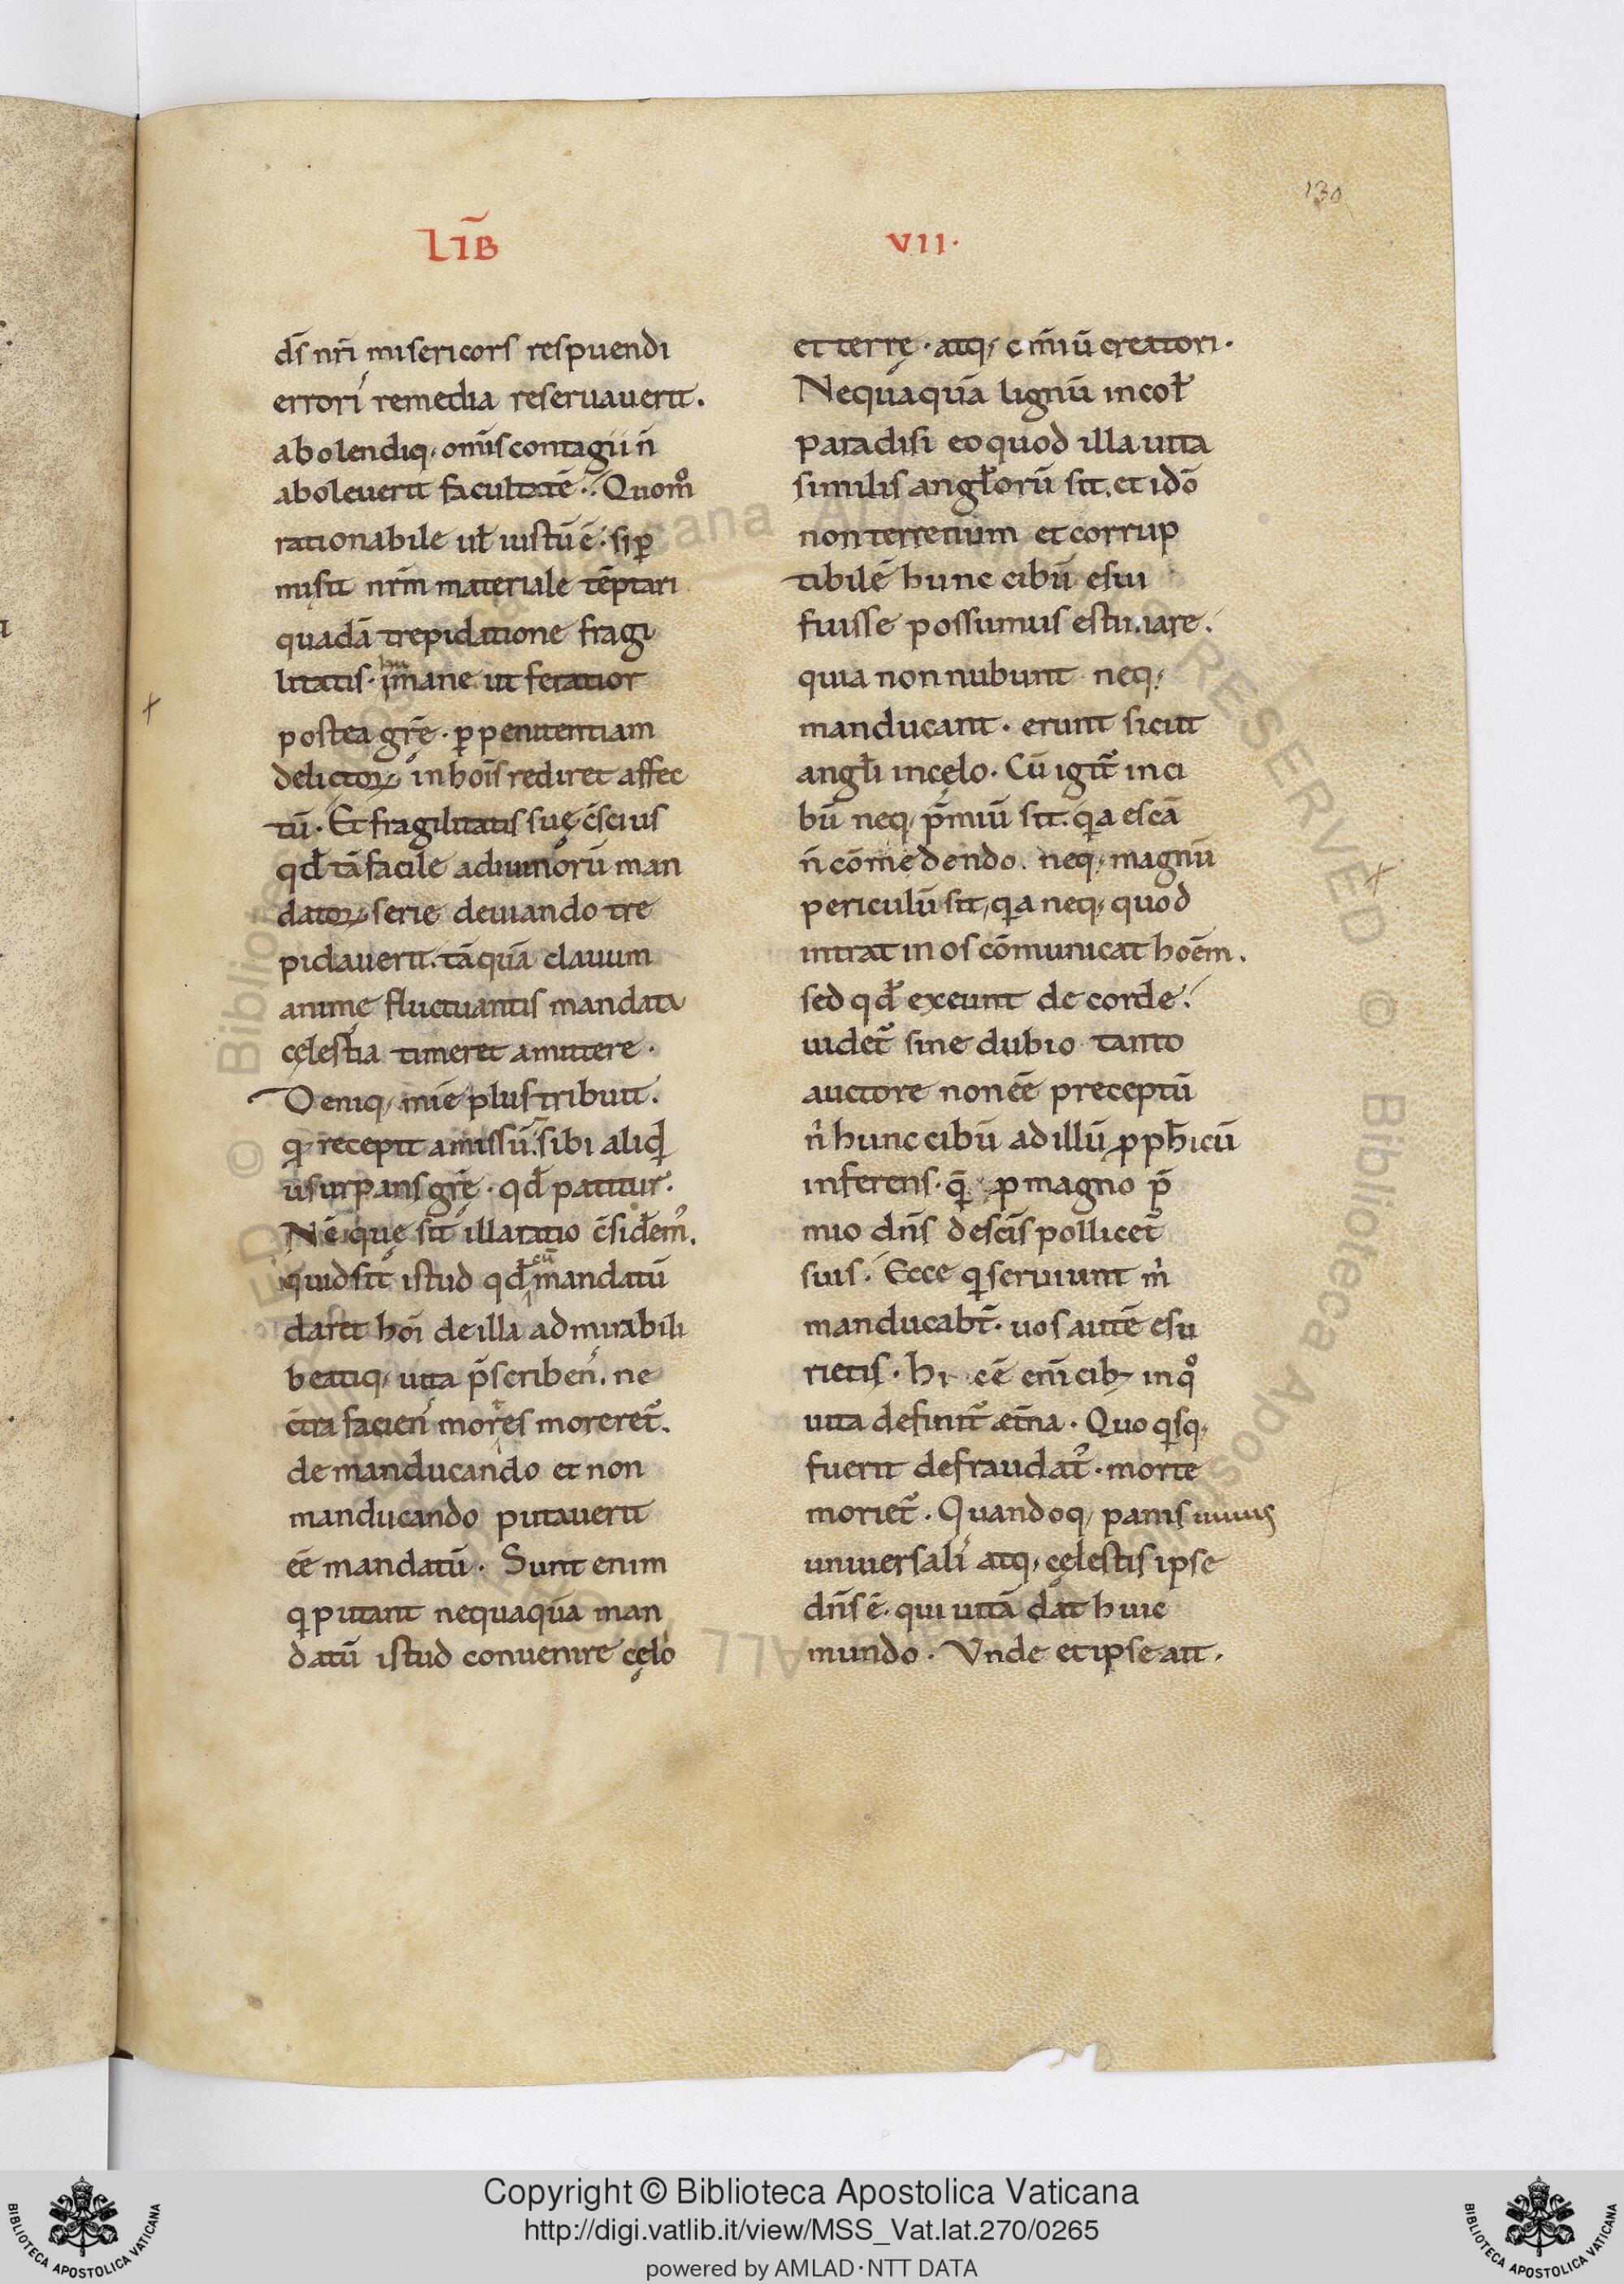 130
LIB̃ VII·
ds̄ nr̄i misericors respuendi
errori᷎ remedia reseruauerit.
abolendiq; om̄is contagii n̄
aboleuerit facultatē. Quom̊
rationabile ul̄ iustū ē· si ꝑ
misit nr̄m materiale tēptari
quadā trepidatione fragi
litatis· humane ut feratior
postea gr̄ę· ꝑ penitentiam
delictoꝝ in bois̄ rediret affec
tū· Et fragilitatis suę c̄scius
qd̄ tā facile adiumorū man
datoꝝ serię deuiando tre
pidauerit. tāquā clauum
animę fluctuantis mandata
cęlestia timeret amittere·
Deniq; mīe plus tribuit.
q recepit amissū. sibi aliqd
usurpans gr̄ę· qd̄ patitur·
Nē que sit illa ratio c̄sidem᷒.
quid sit istud qd̄ cū mandatū
daret hōi de illa admirabili
beatiq; uita p̄scriben᷒. ne
c̄tra facien᷒ mores moreret᷑.
de manducando et non
manducando putauerit
eē mandatū· Sunt enim
qi putant nequaquā man
datū istud conuenire cęlo
et terrę· atq; om̄iū creatori·
Nequaquā lignū incol̄
paradisi eo quod illa uita
similis angl̄orū sit. et idō
non terrenum et corrup
tibilē hunc cibū esui
fuisse possumus estimare.
quia non nubunt neq;
manducant· erunt sicut
angl̄i in cęlo· Cū igit᷑ in ci
bū neq; p̄miū sit. qia escā
n̄ cōmedendo. neq; magnū
periculū sit, qia neq; quod
intrat in os cōmunicat hoēm.
sed qd̄ exeunt de corde.
uidet᷑ sine dubio tanto
auctore non eē preceptū
n᷒ hunc cibū ad illū ꝓph̄icū
inferens· q̄ ꝓ magno p̄
mio dn̄s de scīs pollicet᷑
suis. Ecce qi seruiunt m᷒
manducabt̄· uos autē esu
rietis· hi cē enī cib; in qo
uita definit᷑ æt̄na· Quo qisq;
fuerit defraudat᷒· morte
moriet᷑. Quandoq; panis uiuus
uniuersali᷒ atq; cęlestis ipse
dn̄s ē· qui uitā dat huic
mundo· Vnde et ipse ait.
Copyright © Biblioteca Apostolica Vaticana
http://digi.vatlib.it/view/MSS_Vat.lat.270/0265
powered by AMLAD·NTT DATA